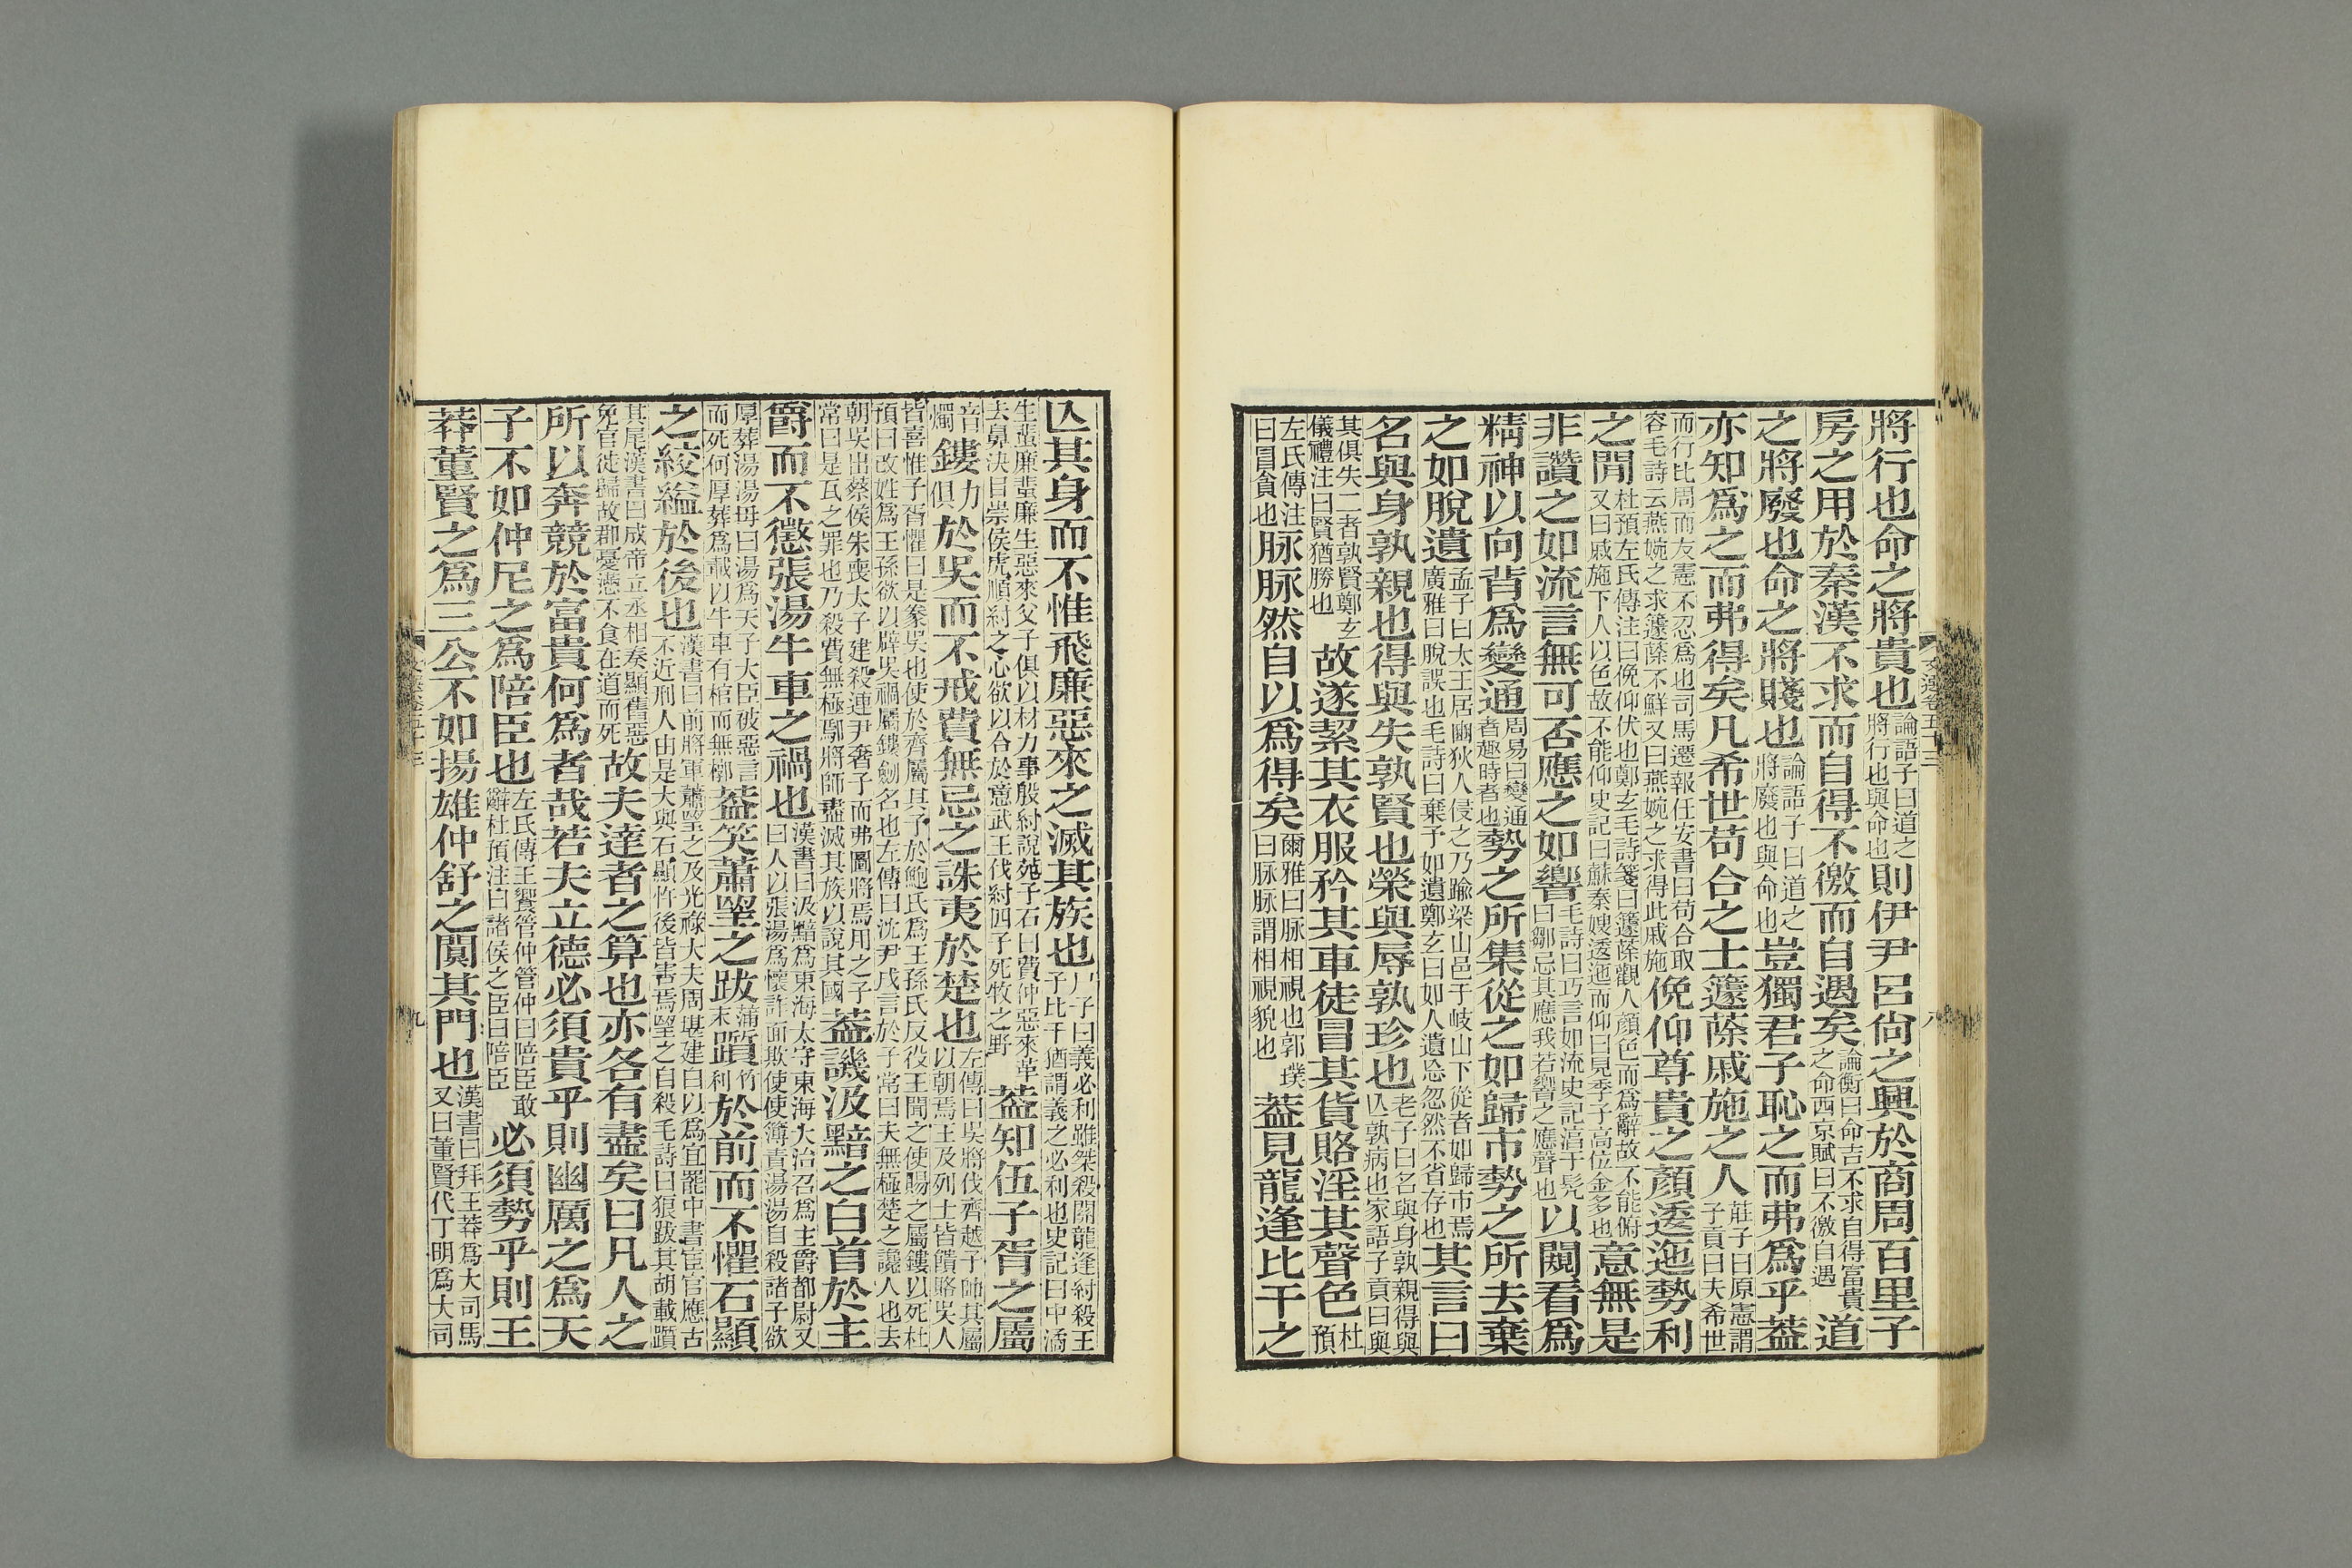 將行也命之將貴也論語子曰道之將行也與命也則伊尹呂尙之興於商周百里子
房之用於秦漢不求而自得不徼而自遇矣論衡曰命吉不求自得富貴之命西京賦曰不徼自遇道
之將廢也命之將賤也論語子曰道之將廢也與命也豈獨君子恥之而弗爲乎葢
亦知爲之而弗得矣凡希世苟合之士籧蒢戚施之人莊子曰原憲謂子貢曰夫希世
而行比周而友憲不忍爲也司馬遷報任安書曰苟合取容毛詩云燕婉之求籧蒢不鮮又曰燕婉之求得此戚施俛仰尊貴之顏逶迤勢利
之閒杜預左氏傳注曰俛仰伏也鄭玄毛詩箋曰籧蒢觀人顏色而爲辭故不能俯又曰戚施下人以色故不能仰史記曰蘇秦嫂逶迤而仰曰見季子高位金多也意無是
非讚之如流言無可否應之如響毛詩曰巧言如流史記淳于髡曰鄒忌其應我若響之應聲也以闚看爲
精神以向背爲變通周易曰變通者趣時者也勢之所集從之如歸市勢之所去棄
之如脫遺孟子曰太王居豳狄人侵之乃踰梁山邑于岐山下從者如歸市焉廣雅曰脫誤也毛詩曰棄予如遺鄭玄曰如人遺忘忽然不省存也其言曰
名與身孰親也得與失孰賢也榮與辱孰珍也老子曰名與身孰親得與亾孰病也家語子貢曰與
其俱失二者孰賢鄭玄儀禮注曰賢猶勝也故遂絜其衣服矜其車徒冒其貨賂淫其聲色杜預
左氏傳注曰冒貪也脉脉然自以爲得矣爾雅曰脉相視也郭璞曰脉脉謂相視貌也葢見龍逢比干之
文選卷五十三
八
亾其身而不惟飛廉惡來之滅其族也尸子曰義必利雖桀殺關龍逢紂殺王子比干猶謂義之必利也史記曰中潏
生蜚廉蜚廉生惡來父子俱以材力事殷紂說苑子石曰費仲惡來革去鼻決目崇侯虎順紂之心欲以合於意武王伐紂四子死牧之野葢知伍子胥之屬
音燭鏤力俱於吳而不戒費無忌之誅夷於楚也左傳曰吳將伐齊越子帥其屬以朝焉王及列士皆饋賂吳人
皆喜惟子胥懼曰是豢吳也使於齊屬其子於鮑氏爲王孫氏反役王聞之使賜之屬鏤以死杜預曰改姓爲王孫欲以辟吳禍屬鏤劒名也左傳曰沈尹戌言於子常曰夫無極楚之讒人也去
朝吳出蔡侯朱喪太子建殺連尹奢子而弗圖將焉用之子常曰是瓦之罪也乃殺費無極鄢將師盡滅其族以說其國葢譏汲黯之白首於主
爵而不懲張湯牛車之禍也漢書曰汲黯爲東海太守東海大治召爲主爵都尉又曰人以張湯爲懷詐面欺使使簿責湯湯自殺諸子欲
厚葬湯湯母曰湯爲天子大臣被惡言而死何厚葬爲載以牛車有棺而無槨葢笑蕭望之跋蒲末躓竹利於前而不懼石顯
之絞縊於後也漢書曰前將軍蕭望之及光祿大夫周堪建白以爲宜罷中書宦官應古不近刑人由是大與石顯忤後皆害焉望之自殺毛詩曰狼跋其胡載躓
其尾漢書曰成帝立丞相奏顯舊惡免官徙歸故郡憂懣不食在道而死故夫達者之算也亦各有盡矣曰凡人之
所以奔競於富貴何爲者哉若夫立德必須貴乎則幽厲之爲天
子不如仲尼之爲陪臣也左氏傳王饗管仲管仲曰陪臣敢辭杜預注曰諸侯之臣曰陪臣必須勢乎則王
莽董賢之爲三公不如揚雄仲舒之闃其門也漢書曰拜王莽爲大司馬又曰董賢代丁明爲大司
九